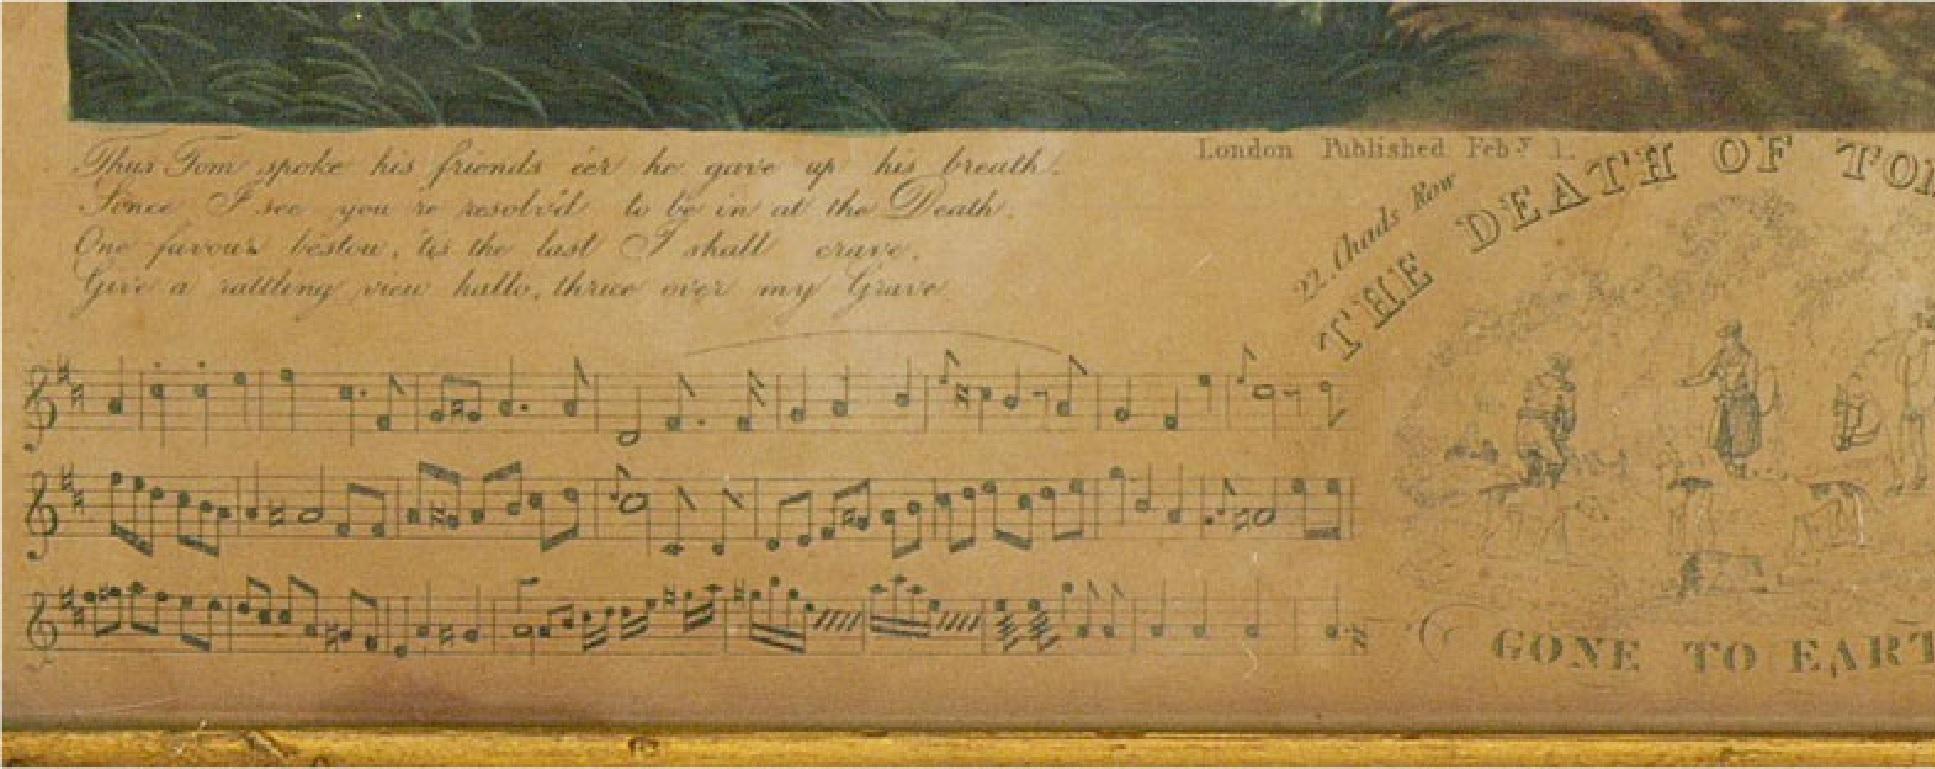 Thus Tom spoke his friends e'er he gave up his breath.
Since I see you're resolv'd to be in at the Death.
One favour bestow, 'tis the last I shall crave.
Give a rattling view hallo, thrice over my Grave.
London Published Feby 1.
22, Chads Row
THE DEATH OF TOM
GONE TO EART